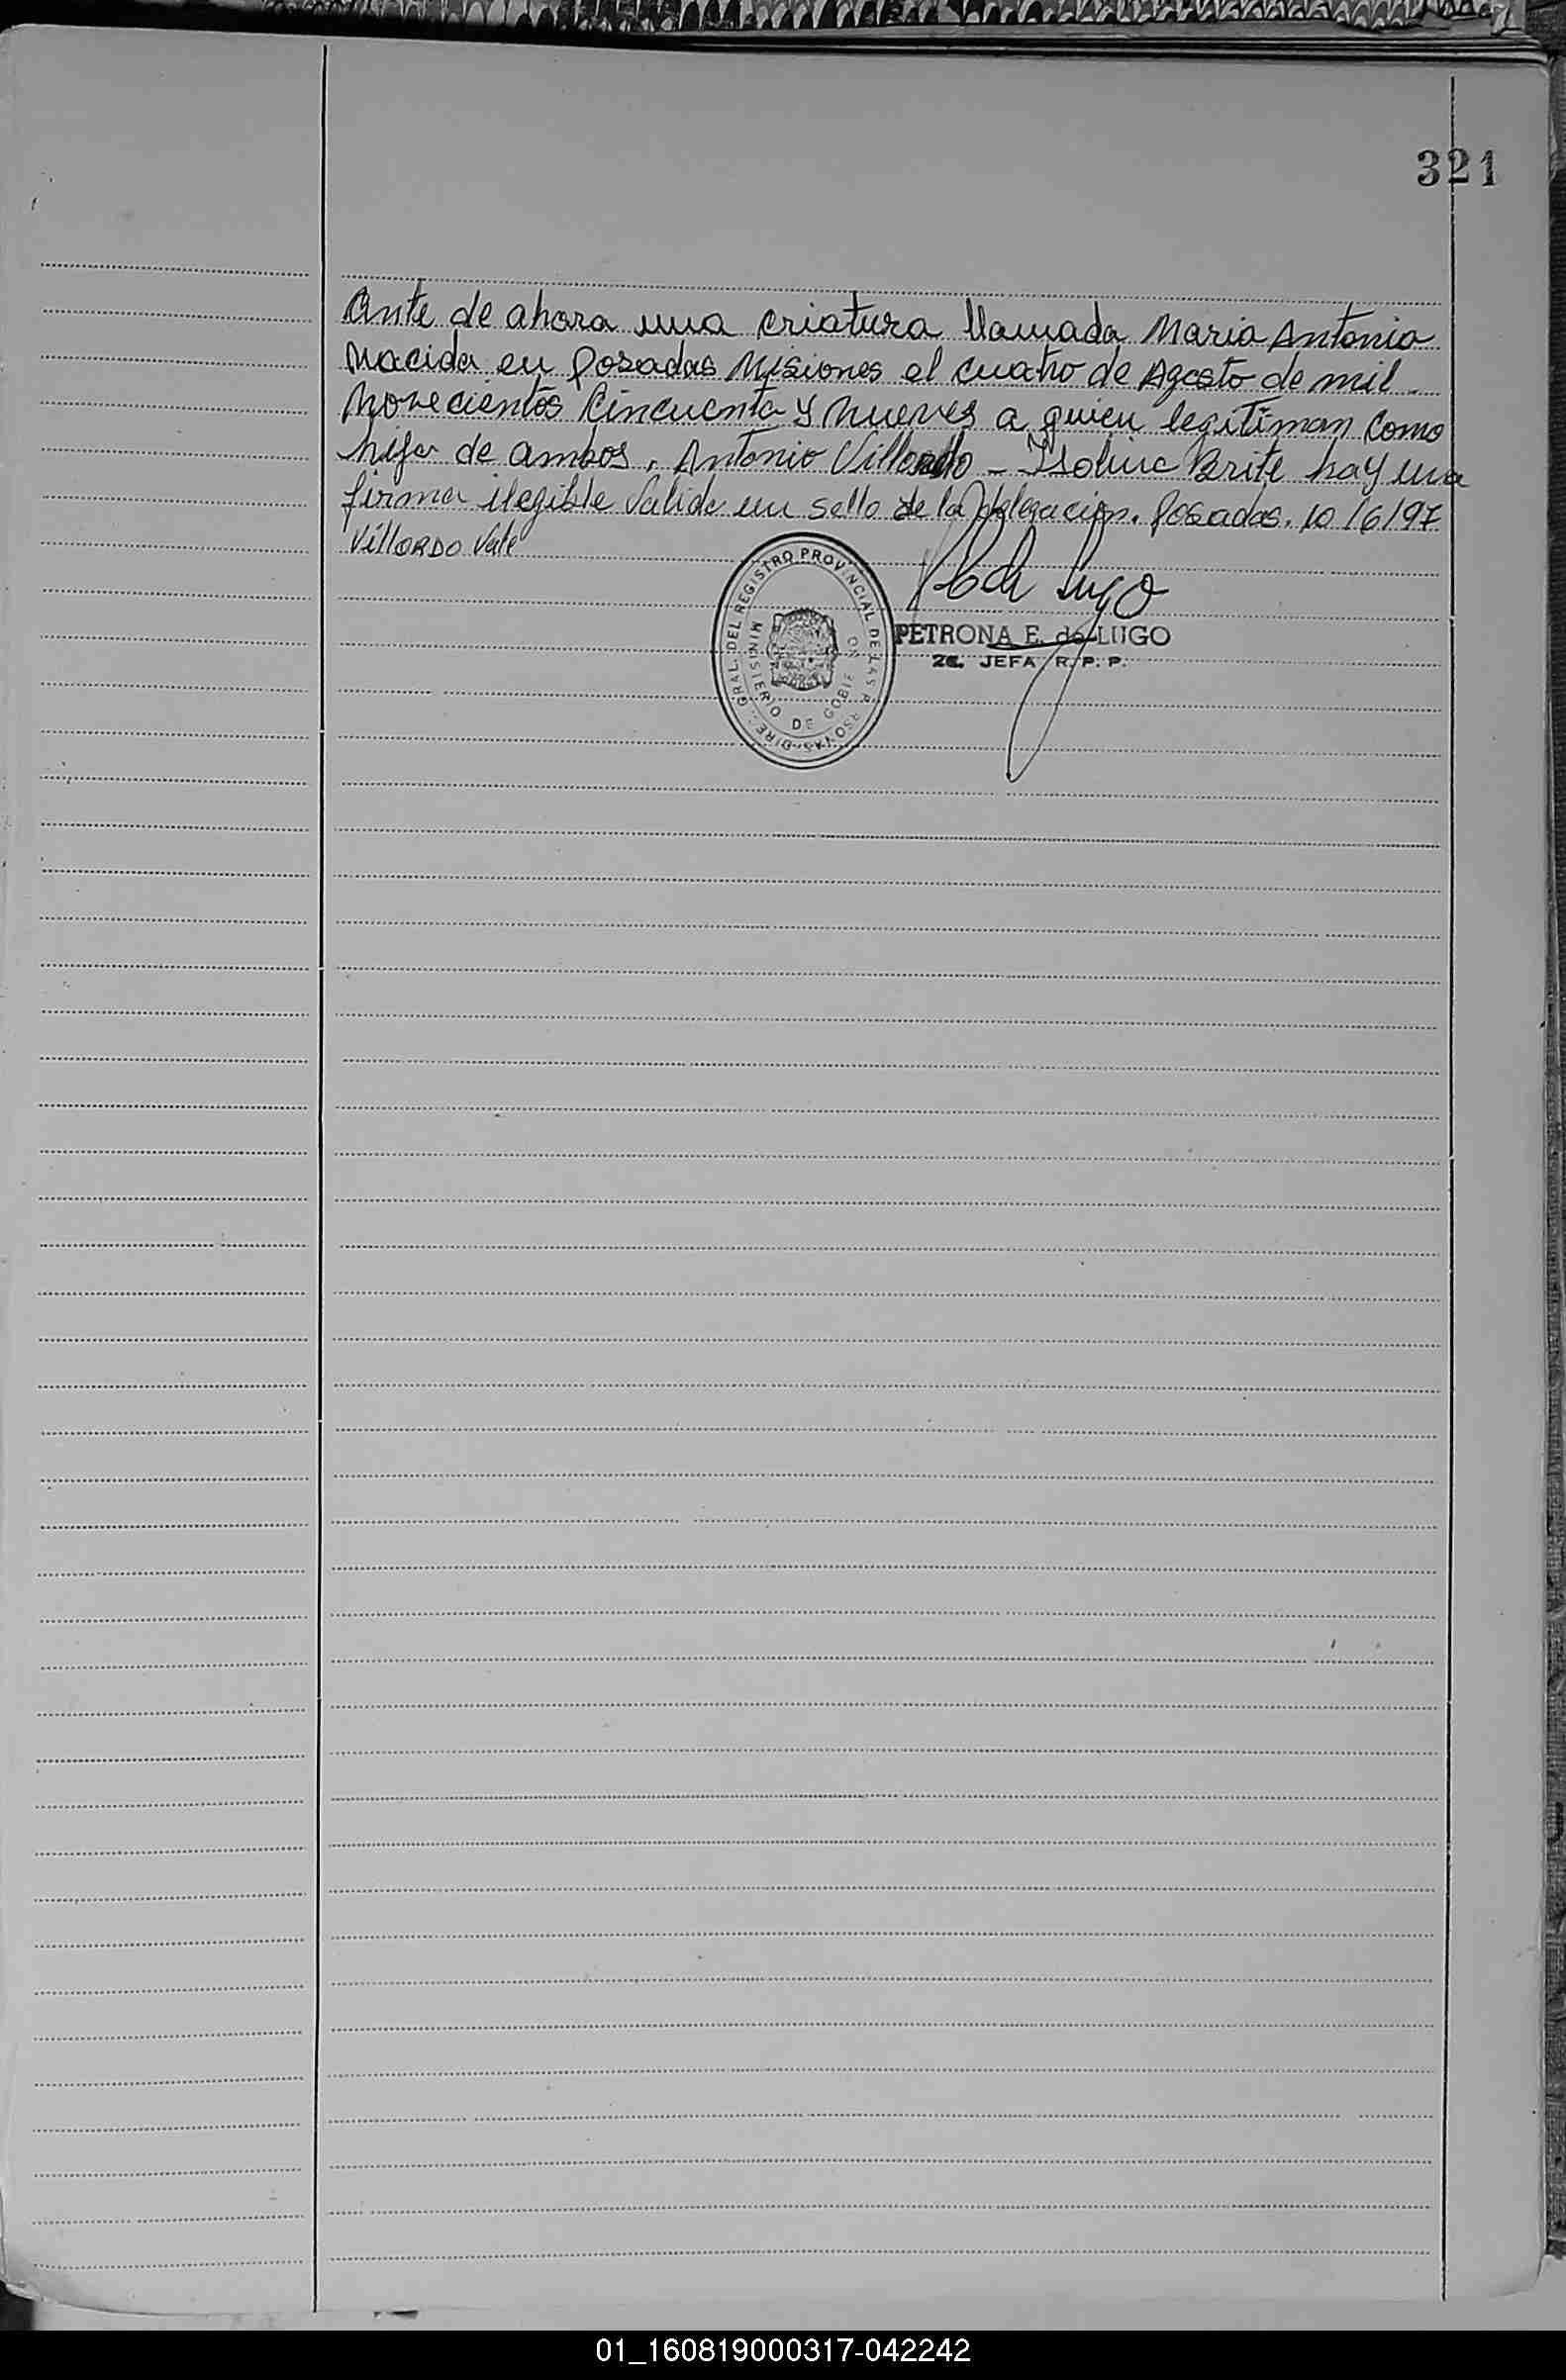 321
Ante de ahora una criatura llamada Maria Antonia
Nacida en Posadas Misiones el cuatro de Agosto de mil
Novecientos Cincuenta y nueves a quien legitiman como
hija de ambos. Antonio Villordo - Isolina Brite hay una
firma ilegible Valida un sello de la Delegacion. Posadas. 10/6/97
VillORDO Vale
DIRE. GRAL. DEL REGISTRO PROVINCIAL DE LAS PERSONAS
MINISTERIO DE GOBIERNO
PETRONA E. de LUGO
2a. JEFA R. P. P.
01_160819000317-042242